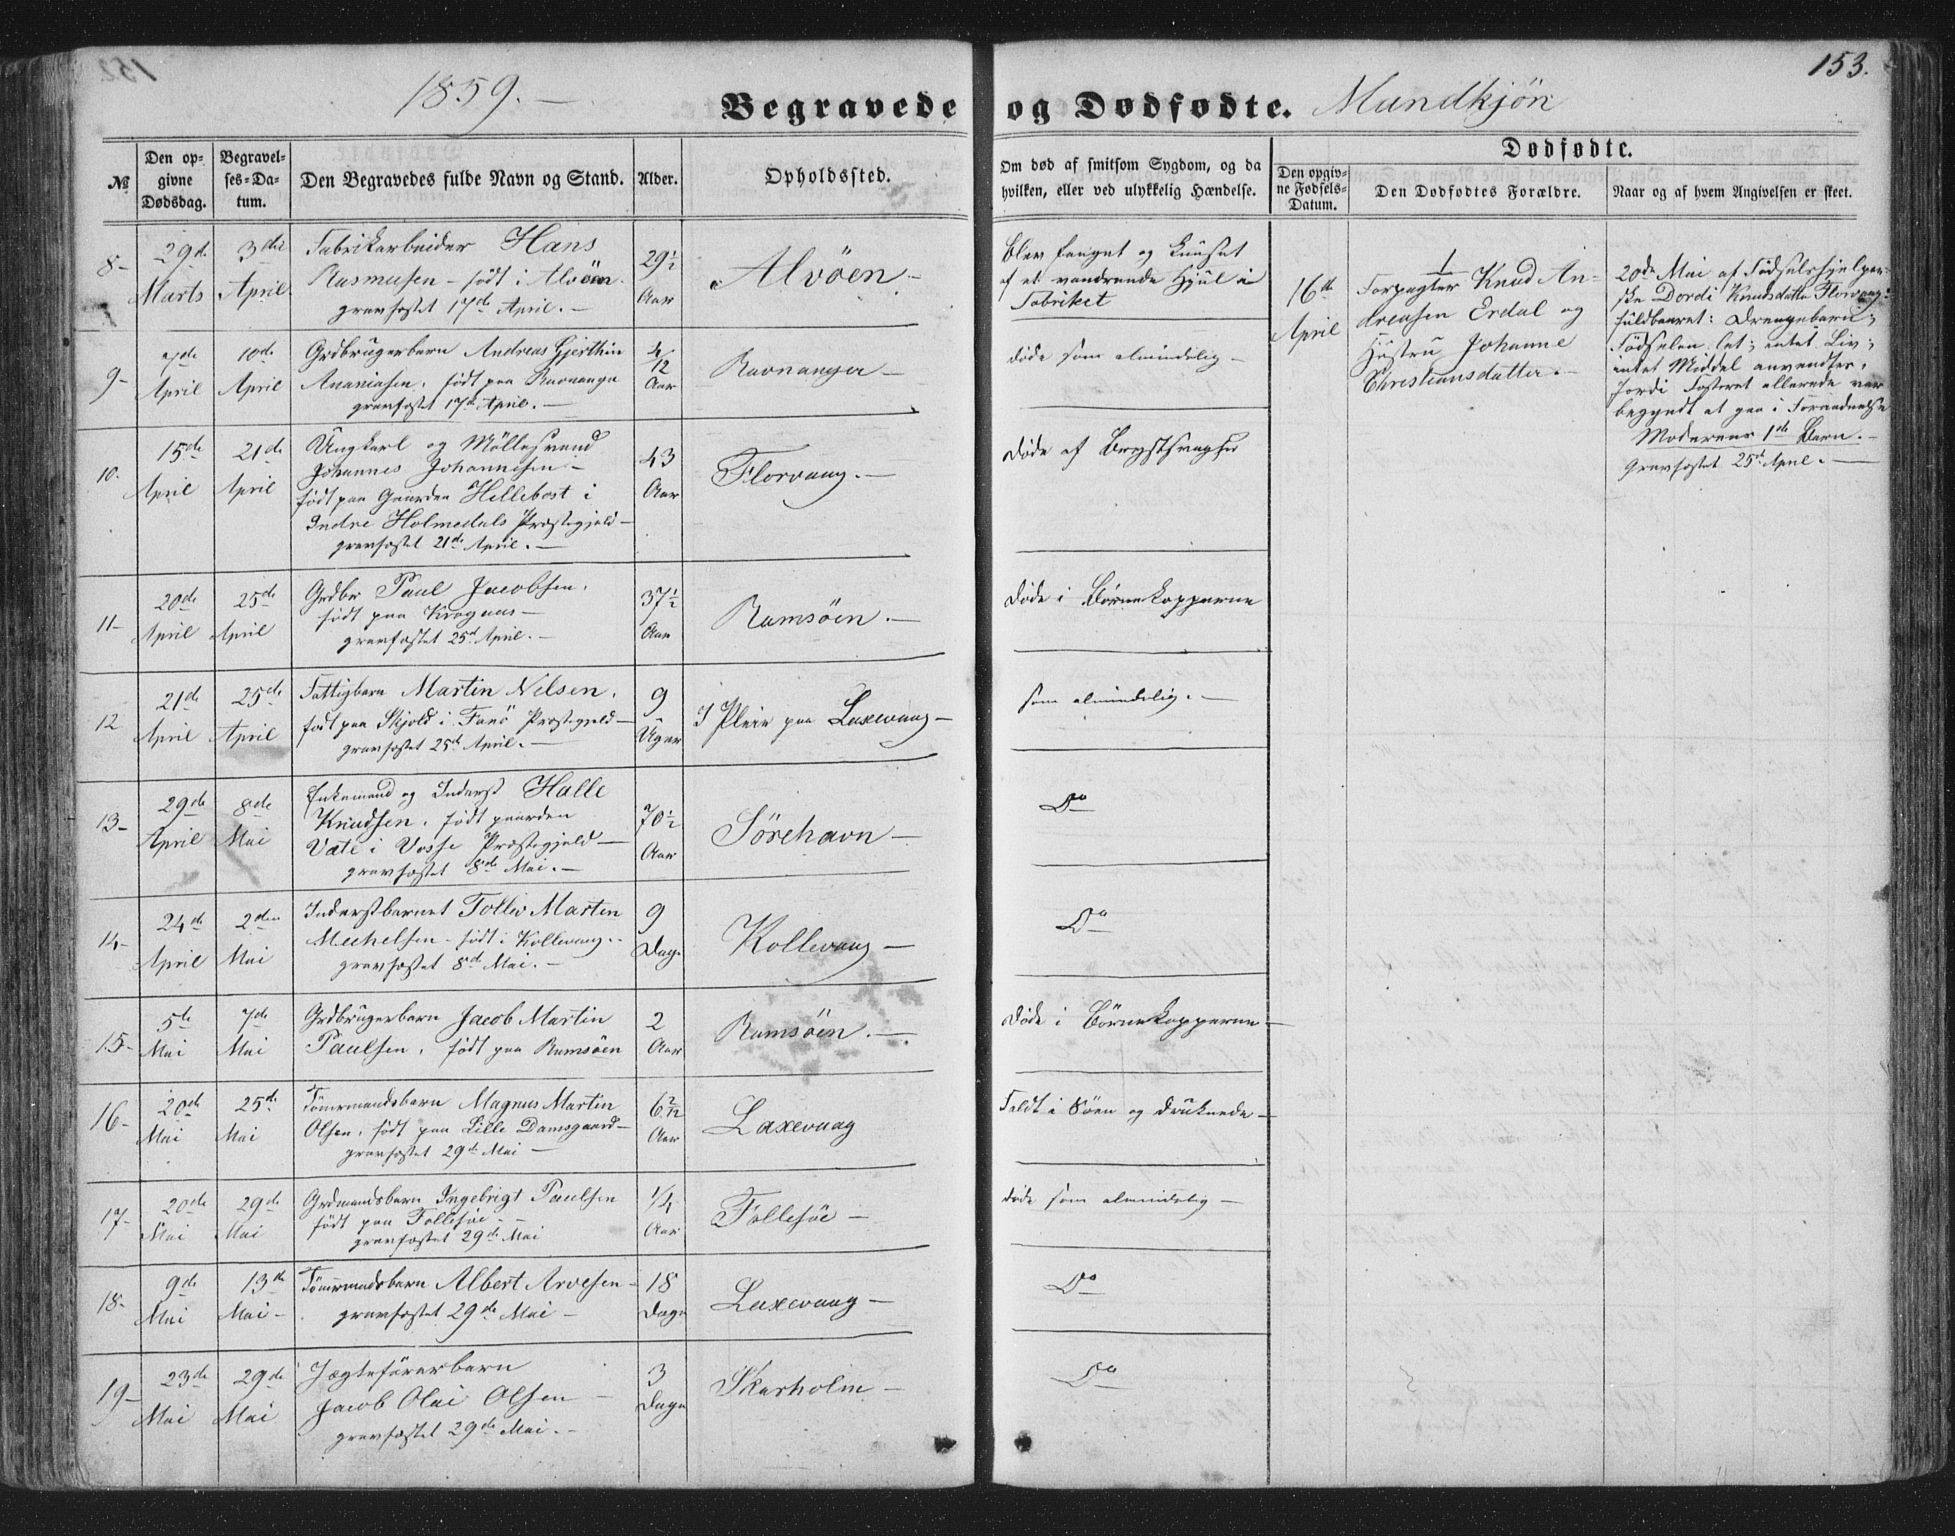 1859. —
Begravede og Dødfødte. Mandkjøn
153.
№
Den op-
givne
Dødsdag.
Begravel-
ses-Da-
tum.
Den Begravedes fulde Navn og Stand.
Alder.
Opholdssted.
Om død af smitsom Sygdom, og da
hvilken, eller ved ulykkelig Hændelse.
Dødfødte.
Den opgiv-
ne Fødsels-
Datum.
Den Dødfødtes Forældre.
Naar og af hvem Angivelsen er skeet.
8-
29de
Marts
3die
April
Fabrikarbeider Hans
Rasmussen - født i Alvöen.
gravfæstet 17de April. —
29½
Aar
Alvöen. —
Blev fanget og knuset
af et vandrende Hjul i
Fabriket
16de
April
1
Forpagter Knud An-
dreasen Erdal og
Hustru Johanne
Christiansdatter. —
20de Mai af Fødselshjelper-
ske Dordi Knudsdatter Florvaag:
fuldbaaret: Drengebarn;
Fødselen let; intet Liv;
intet Middel anvendtes,
fordi Fosteret allerede var
begyndt at gaa i Forraadnelse
Moderens 1ste Barn. —
Gravfæstet 25de April. —
9-
7de
April
10de
April
Grdbrugerbarn Andreas Gjerthin
Ananiasen, født paa Ravnanger
gravfæstet 17de April. —
4/12
Aar
Ravnanger —
døde som almindelig —
10.
15de
April
21de
April
Ungkarl og Möllesvend
Johannes Johannesen —
født paa Gaarden Hellebost i
Indre Holmedals Præstegjeld —
gravfæstet 21de April. —
43
Aar
Florvaag. —
døde af Brystsvaghed
11-
20de
April
25de
April
Grdbr Paul Jacobsen,
født paa Krognes —
gravfæstet 25de April. —
37½
Aar
Ramsöen. —
døde i Børnekopperne
12
21de
April
25de
April
Fattigbarn Martin Nilsen,
født paa Skjold i Fanö Præstegjeld —
gravfæstet 25de April. —
9
Uger
I Pleie paa Laxevaag —
som almindelig. —
13-
29de
April
8de
Mai
Enkemand og Inderst Halle
Knudsen, født paa Garden
Væte i Vosse Præstegjeld —
gravfæstet 8de Mai. —
70½
Aar
Sörehavn —
Do
14-
24de
April
2den
Mai
Inderstbarnet Tollev Martin
Mechelsen - født i Kollevaag. -
gravfæstet 8de Mai. —
9
Dage
Kollevaag —
Do
15-
5te
Mai
7de
Mai
Grdbrugerbarn Jacob Martin
Paulsen, født paa Ramsöen
2
Aar
Ramsöen. —
døde i Börnekopperne —
16-
20de
Mai
25de
Mai
Tömrmandsbarn Magnus Martin
Olsen, født paa Lille Damsgaard —
gravfæstet 29de Mai —
6 2/12
Aar
Laxevaag
Faldt i Söen og druknede —
17-
20de
Mai
29de
Mai
Grdmandsbarn Ingebrigt Paulsen
født paa Follesöe - -
gravfæstet 29de Mai
1/4
Aar
Follesöe —
døde som almindelig —
18-
9de
Mai
13de
Mai -
Tömrmandsbarn Albert Arvesen -
gravfæstet 29de Mai —
18
Dage
Laxevaag —
Do
19-
23de
Mai
29de
Mai
Jægteförerbarn
Jacob Olai Olsen —
gravfæstet 29de Mai. —
3
Dage
Skarholm —
Do